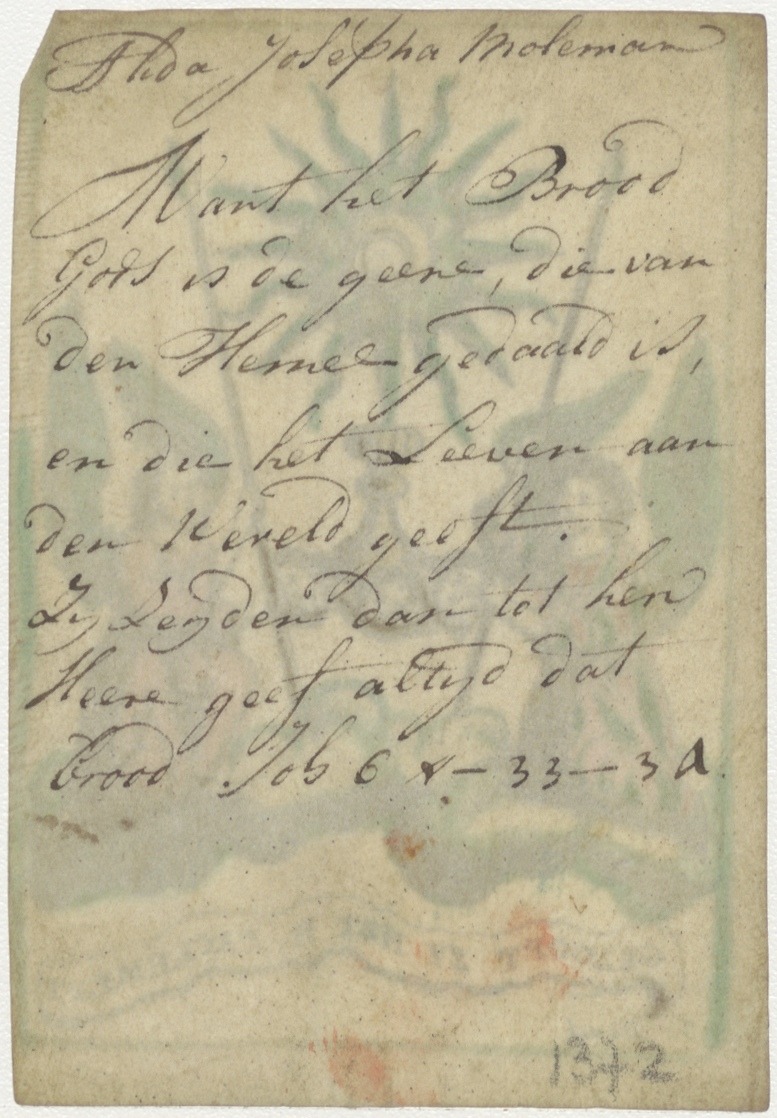 Alida Josépha Moleman
Want het Brood
Gods is de geene, die van
den Hemel gedaald is,
en die het Leeven aan
den Wereld geeft.
Zy Zeyden dan tot hen
Heere geef altyd dat
brood Joh 6 v - 33 - 34.
1372